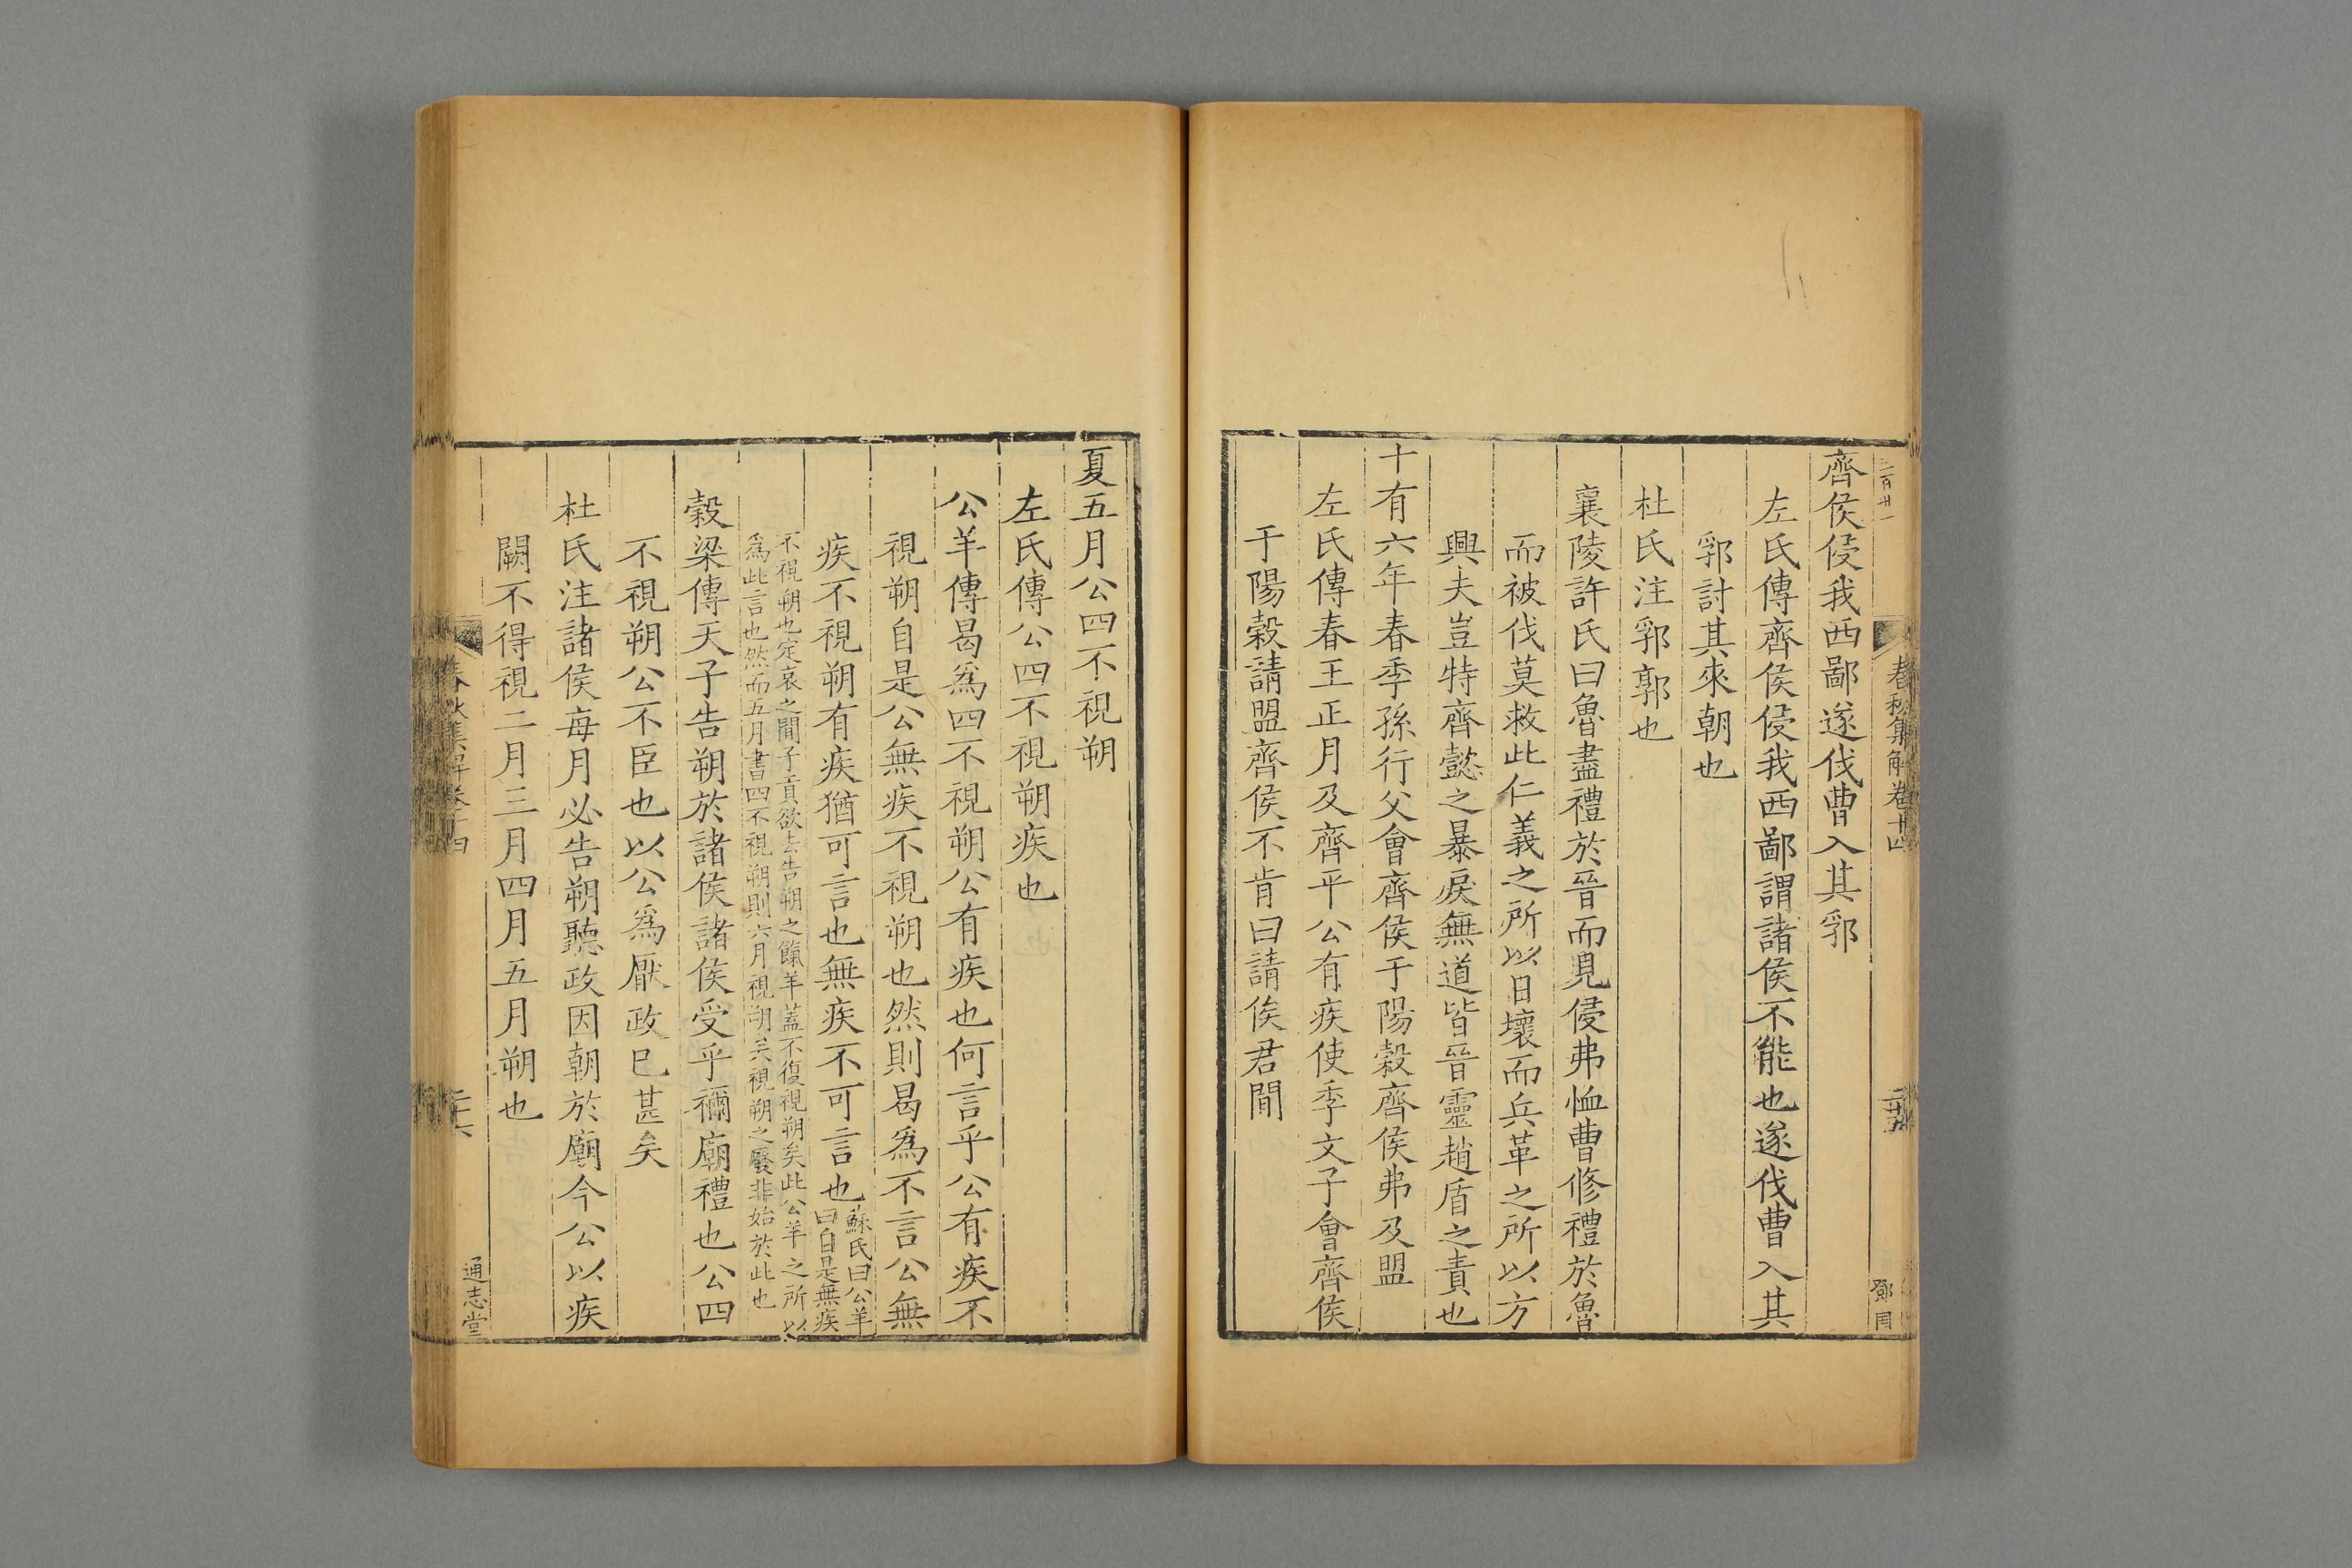 齊侯侵我西鄙遂伐曹入其郛
左氏傳齊侯侵我西鄙謂諸侯不能也遂伐曹入其
郛討其來朝也
杜氏注郛郭也
襄陵許氏曰魯盡禮於晉而見侵弗恤曹修禮於魯
而被伐莫救此仁義之所以日壞而兵革之所以方
興夫豈特齊懿之暴戾無道皆晉靈趙盾之責也
十有六年春季孫行父會齊侯于陽穀齊侯弗及盟
左氏傳春王正月及齊平公有疾使季文子會齊侯
于陽穀請盟齊侯不肯曰請俟君閒
春秋集解卷十四
夏五月公四不視朔
左氏傳公四不視朔疾也
公羊傳曷爲四不視朔公有疾也何言乎公有疾不
視朔自是公無疾不視朔也然則曷爲不言公無
疾不視朔有疾猶可言也無疾不可言也蘇氏曰公羊
曰自是無疾
不視朔也定哀之間子貢欲去告朔之餼羊蓋不復視朔矣此公羊之所以
爲此言也然而五月書四不視朔則六月視朔矣視朔之廢非始於此也
穀梁傳天子告朔於諸侯諸侯受乎禰廟禮也公四
不視朔公不臣也以公爲厭政已甚矣
杜氏注諸侯每月必告朔聽政因朝於廟今公以疾
闕不得視二月三月四月五月朔也
通志堂